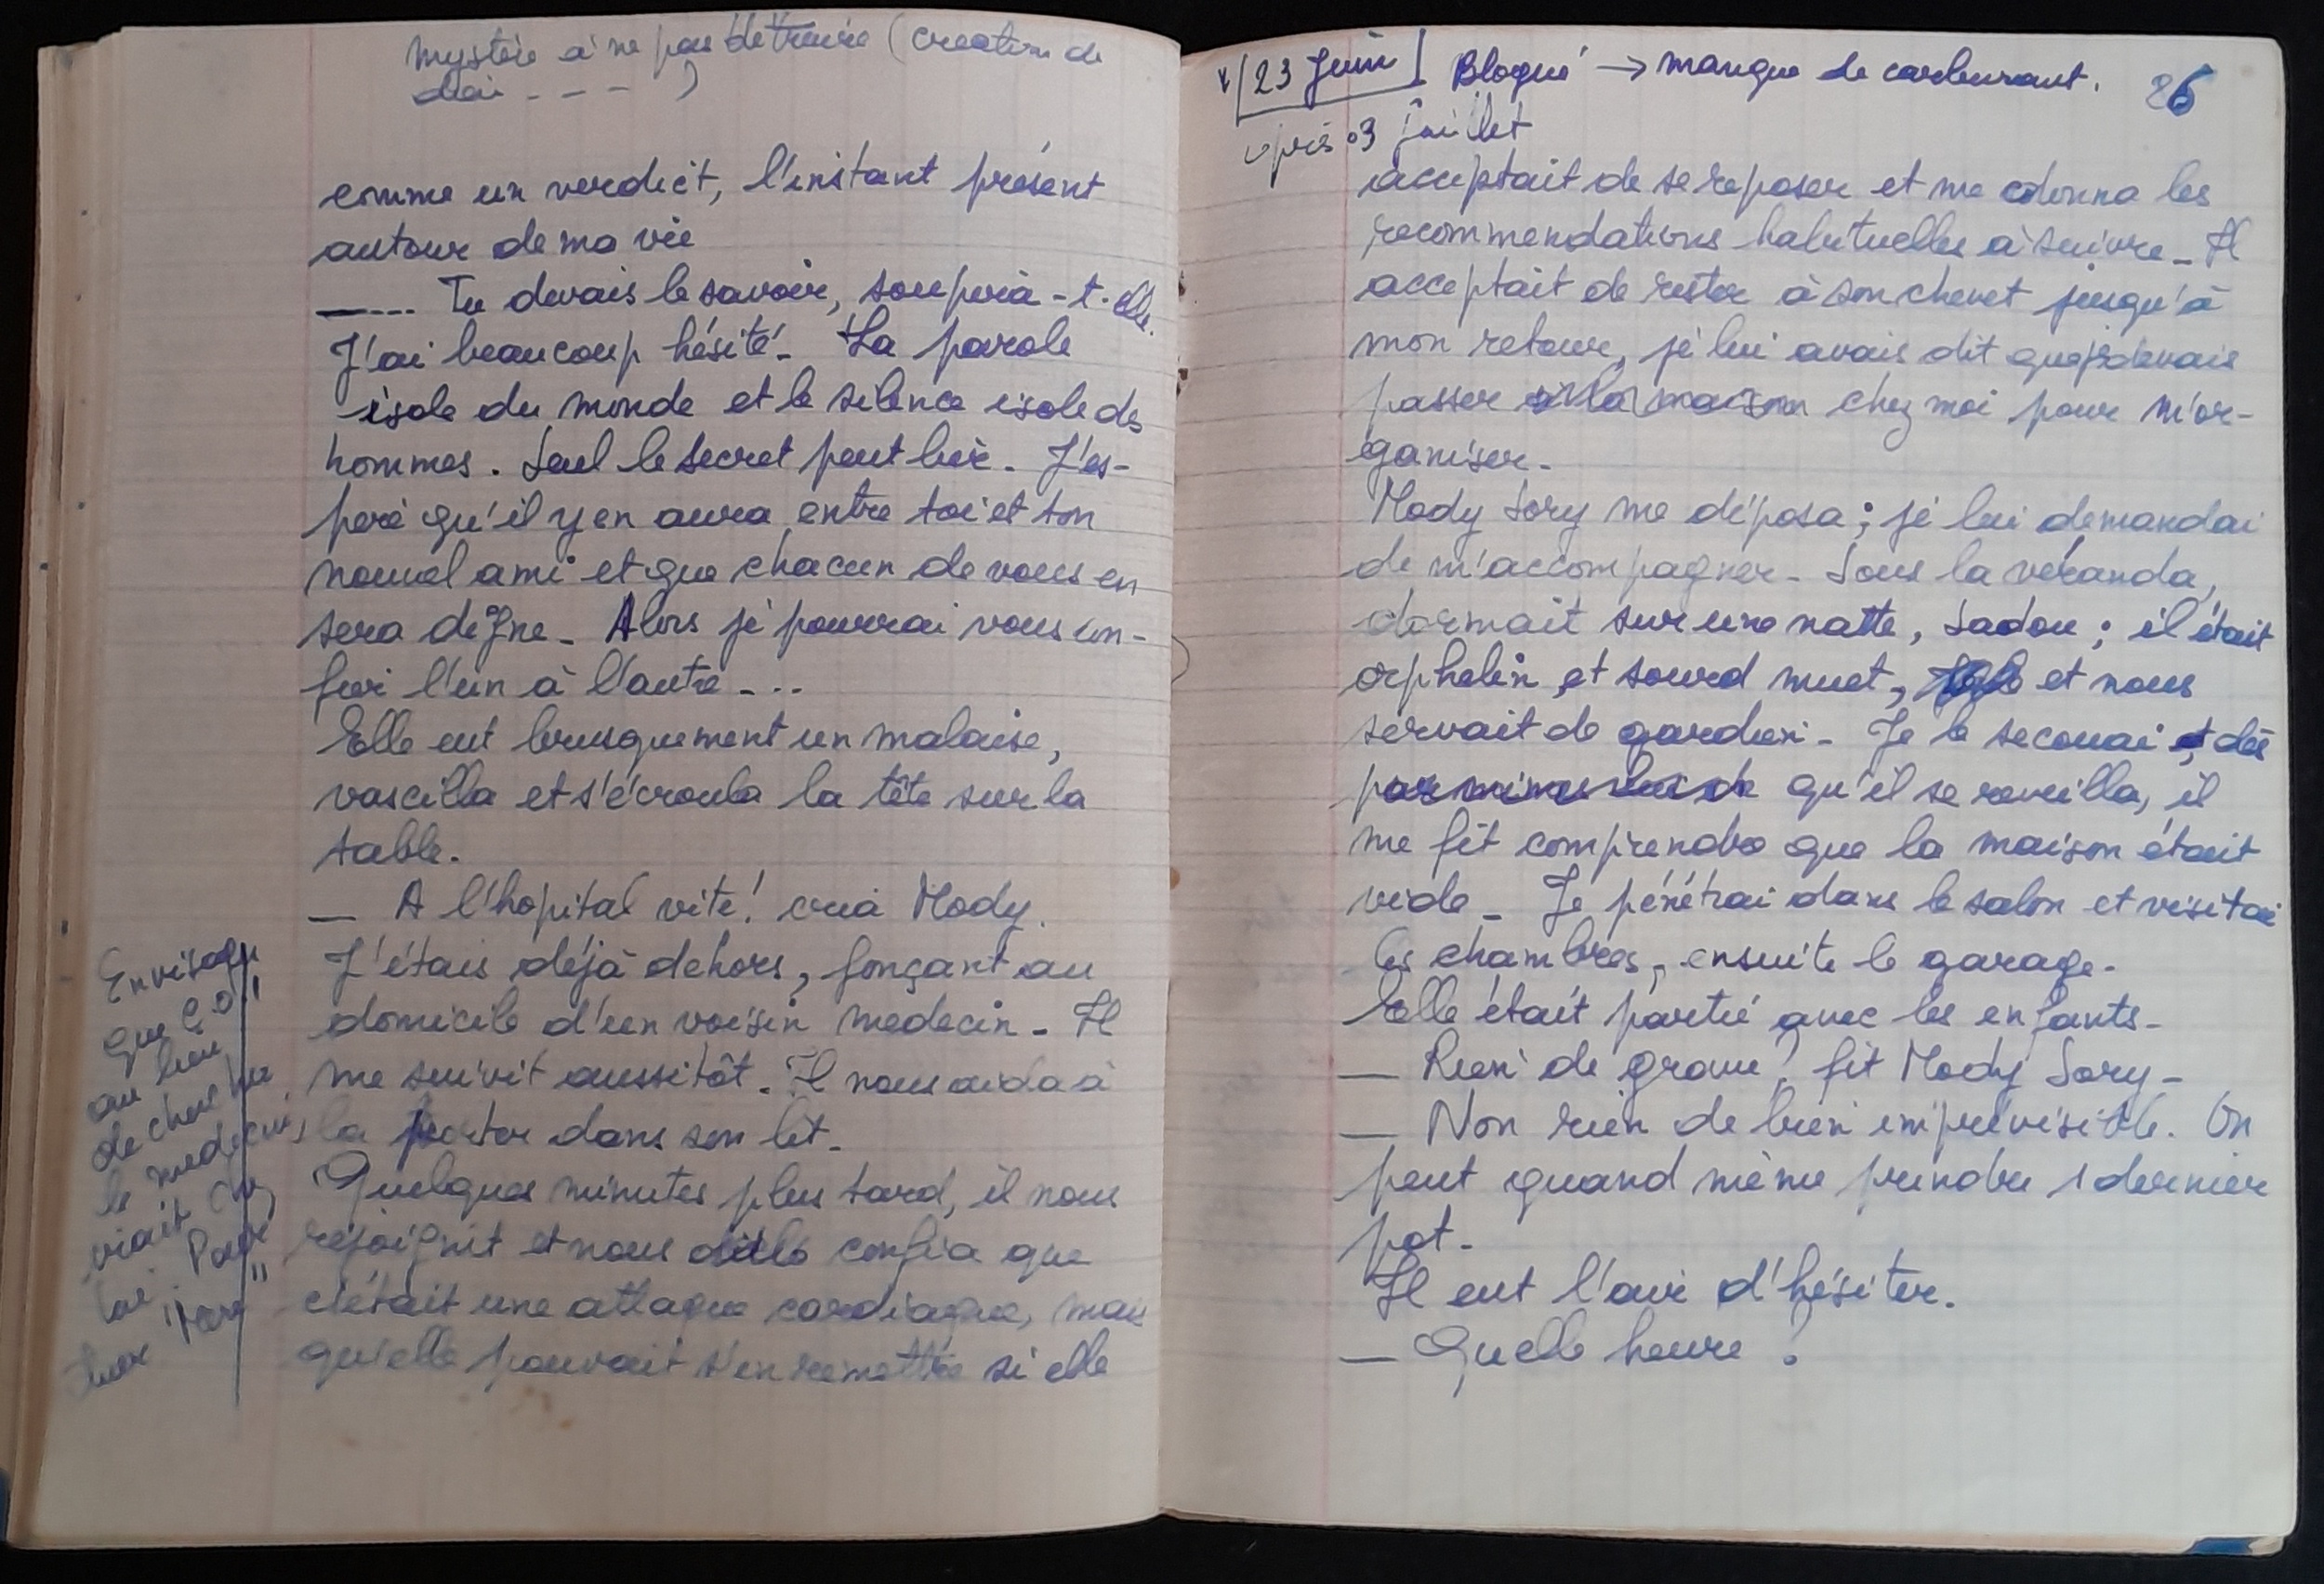 mystère à ne pas détruire (création de
comme un verdict, l'instant présent
autour de ma vie
—... Tu devais le savoir, soupira-t-elle.
J'ai beaucoup hésité. La parole
isole du monde et le silence isole des
hommes. Seul le secret peut lier. J'es-
père qu'il y en aura entre toi et ton
nouvel ami et que chacun de vous en
sera digne. Alors je pourrai vous con-
fier l'un à l'autre...
Elle eut brusquement un malaise,
vascilla et s'écroula la tête sur la
table.
— A l'hopital vite! cria Mody.
J'étais déjà dehors, fonçant au
domicile d'un voisin medecin. Il
me suivit aussitôt. Il nous aida à
la porter dans son lit.
Quelques minutes plus tard, il nous
rejoignit et nous confia que
c'était une attaque cardiaque, mais
qu'elle pouvait s'en remettre si elle
Envisager
que
au lieu
de chercher
le medecin,
[23 Juin] Bloqué → manque de carburant. 26
après 03 juillet
acceptait de se reposer et me donna les
recommendations habituelles à suivre. Il
acceptait de rester à son chevet jusqu'à
mon retour, je lui avais dit que je devais
passer à la maison chez moi pour m'or-
ganiser.
Mody Sory me déposa; je lui demandai
de m'accompagner. Sous la véranda,
dormait sur une natte, Sadou; il était
orphelin et sourd muet, et nous
servait de gardien. Je le secouai, dès
qu'il se reveilla, il
me fit comprendre que la maison était
vide. Je pénétrai dans le salon et visitai
les chambres, ensuite le garage.
Elle était partie avec les enfants.
— Rien de grave? fit Mody Sory.
— Non rien de bien imprévisible. On
peut quand même prendre 1 dernier
pot.
Il eut l'air d'hésiter.
— Quelle heure?